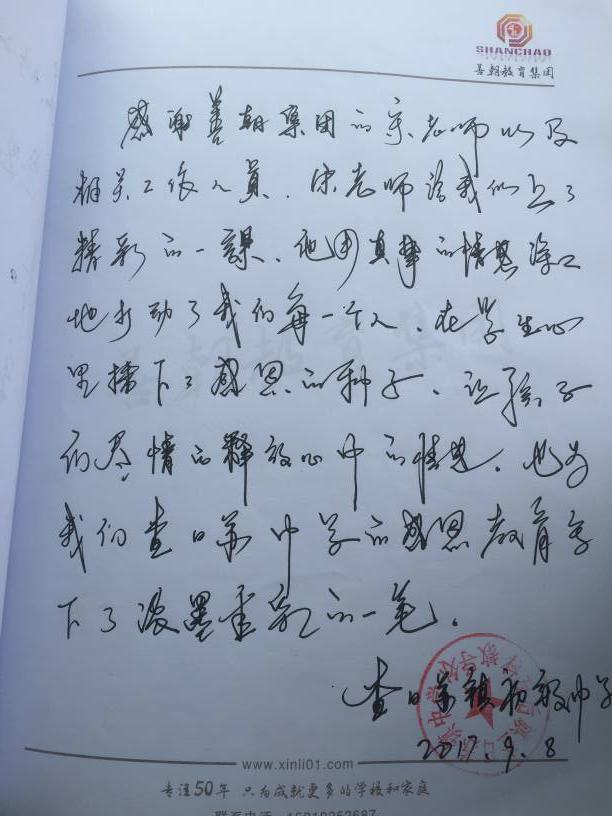 SHANCHAO
善朝教育集团
感谢善朝集团的宋老师以及
相关工作人员。宋老师给我们上了
精彩的一课、他用真挚的情感深深
地打动了我们每一个人、在学生心
里播下了感恩的种子、让孩子
们尽情的释放心中的情感、也为
我们查日苏中学的感恩教育写
下了浓墨重彩的一笔。
查日苏镇初级中学
2017.9.8
www.xinli01.com
专注50年 只为成就更多的学校和家庭